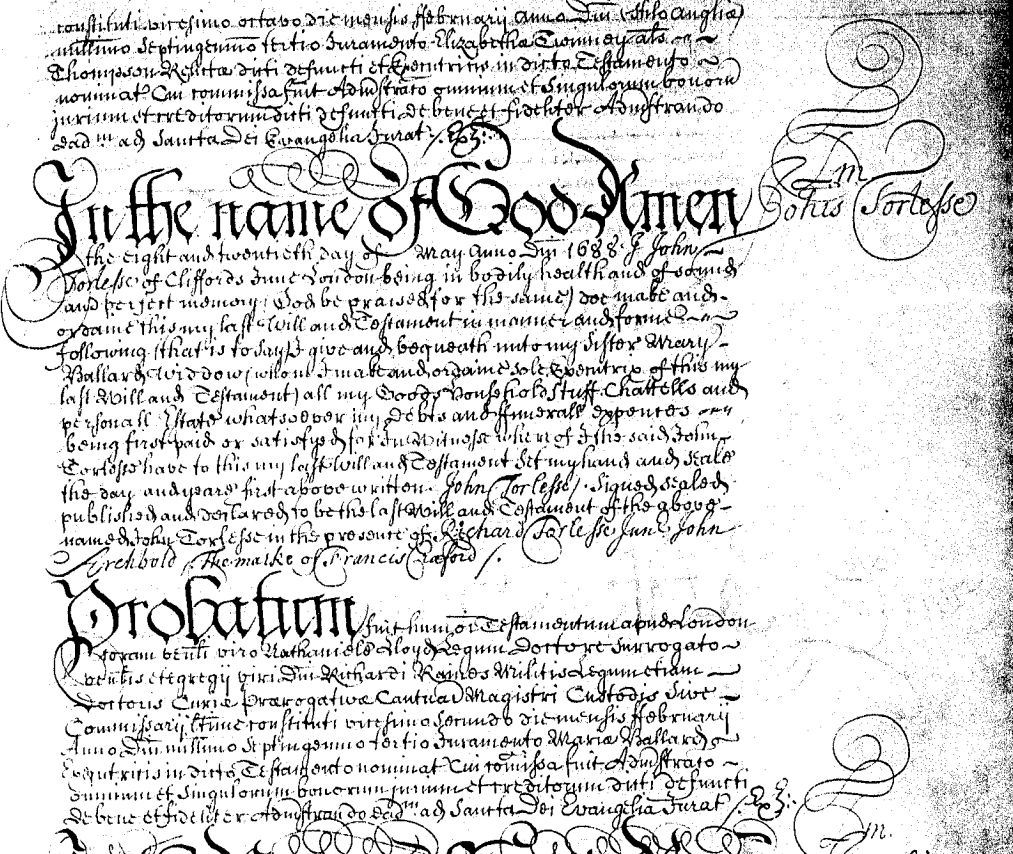 constituti vicesimo octavo die mensis ffebruarij Anno Dni (stilo Anglia)
millimo Septingenmo tertio Juramento Elizabethæ als
Thompson Relictæ dicti defuncti et Executricis in dicto Testamento
nominat Cui commissa fuit Admstrato omnium et Singulorum bonorũ
jurium et creditorum dicti defuncti de bene et fideliter Admstrando
ead m ad Sancta Dei Evangelia Jurat /. Exz:
In the name of God Amen
Tm
Johis Torlesse
the eight and twentieth day of May Anno Dni 1688 I John
Torlesse of Cliffords Inne London being in bodily health and of sound
and perfect memory (God be praised for the same) doe make and
ordaine this my last Will and Testament in manner and forme
following (that is to say) I give and bequeath unto my Sister Mary
Ballard Widdow (whom I make and ordaine sole Executrix of this my
last Will and Testament) all my Goods Household stuff Chattells and
personall Estate whatsoever my debts and ffuneralls expences
being first paid or satisfyed for In Witnesse whereof I the said John
Torlesse have to this my last Will and Testament Set my hand and Seale
the day and yeare first above written John Torlesse /. Signed sealed
published and declared to be the last Will and Testament of the above
named John Torlesse in the presence of Richard Torlesse Junr John
Archbold The marke of Francis Raford /.
Probatum fuit hmoi Testamentum apud London
coram venli viro Nathaniele Lloyd Legum Doctore Surrogato
venlis et egregij viri Dni Richardi Raines Militis Legum etiam
Doctoris Curiæ Prærogativæ Cantuar Magistri Custodis sive
Commissarij ltime constituti vicesimo Secundo die mensis ffebruarij
Anno Dni millimo Septingenmo tertio Juramento Mariæ Ballard
Executricis in dicto Testamento nominat Cui comissa fuit Admstrato
omnium et singulorum bonorum jurium et creditorum dicti defuncti
de bene et fideliter Admstrando ead m ad Sancta Dei Evangelia Jurat /. Exz:
Tm.